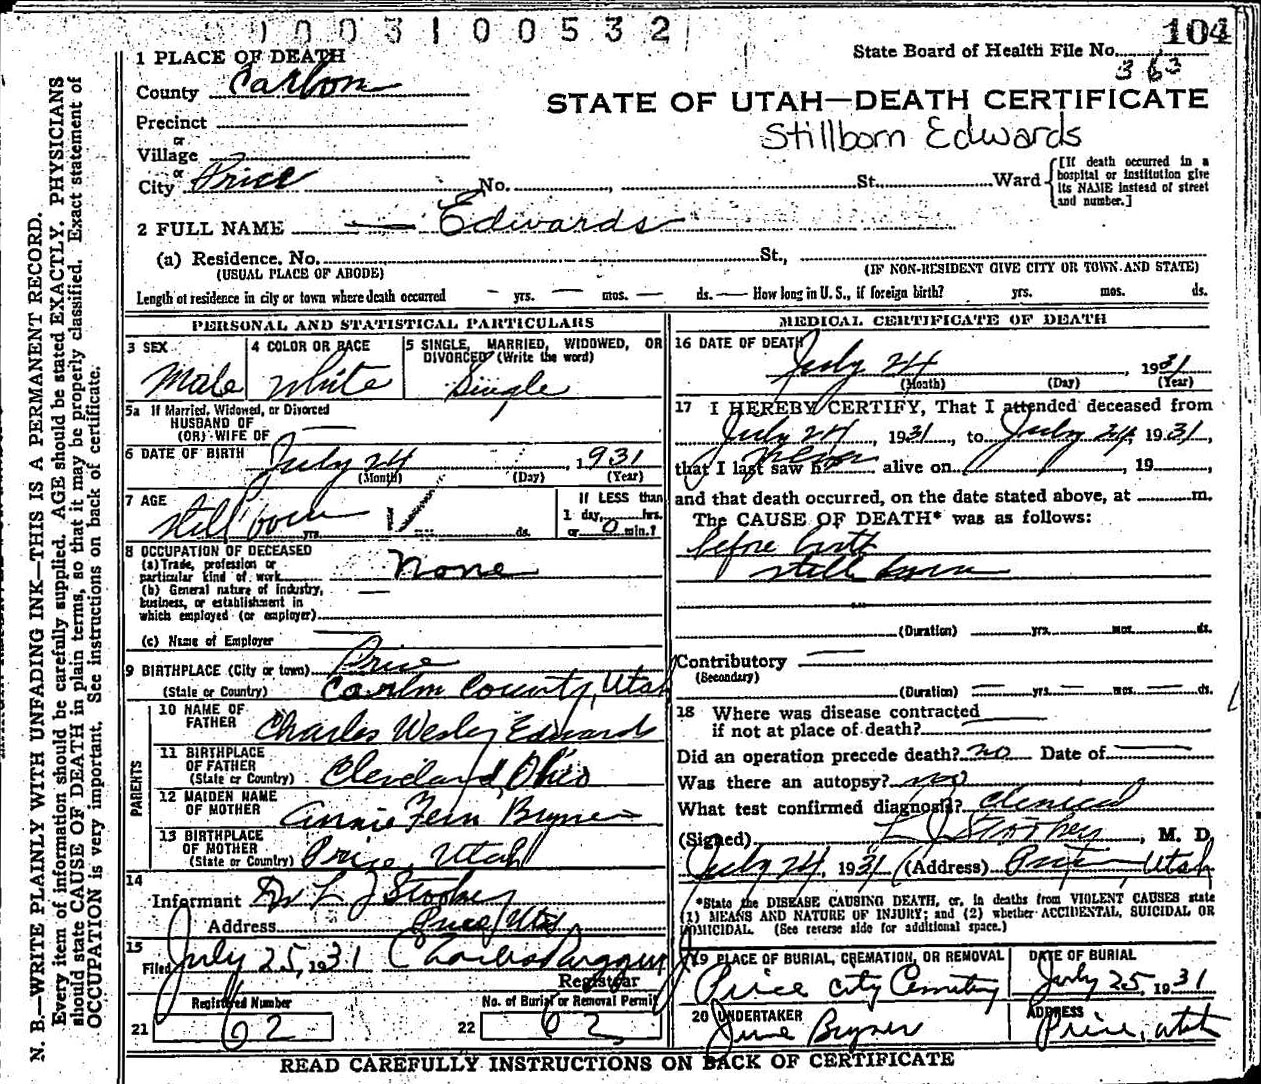 0003100532
104
State Board of Health File No. 363
1 PLACE OF DEATH
County Carbon
STATE OF UTAH—DEATH CERTIFICATE
Precinct
Stillborn Edwards
or
Village
or
City Price No. , St. Ward
[If death occurred in a hospital or institution give its NAME instead of street and number.]
2 FULL NAME — Edwards
(a) Residence. No. St.,
(USUAL PLACE OF ABODE) (IF NON-RESIDENT GIVE CITY OR TOWN AND STATE)
Length of residence in city or town where death occurred — yrs. — mos. — ds. — How long in U. S., if foreign birth? yrs. mos. ds.
PERSONAL AND STATISTICAL PARTICULARS
3 SEX
Male
4 COLOR OR RACE
White
5 SINGLE, MARRIED, WIDOWED, OR DIVORCED (Write the word)
Single
5a If Married, Widowed, or Divorced
HUSBAND OF
(OR) WIFE OF —
6 DATE OF BIRTH July 24, 1931
(Month) (Day) (Year)
7 AGE
Stillborn
yrs. ds.
If LESS than
1 day, hrs.
or 0 min.?
8 OCCUPATION OF DECEASED
(a) Trade, profession or
particular kind of work None
(b) General nature of industry,
business, or establishment in
which employed (or employer) —
(c) Name of Employer —
9 BIRTHPLACE (City or town) Price
(State or Country) Carbon County, Utah
PARENTS
10 NAME OF
FATHER Charles Wesley Edwards
11 BIRTHPLACE
OF FATHER
(State or Country) Cleveland, Ohio
12 MAIDEN NAME
OF MOTHER Annie Fern Bryner
13 BIRTHPLACE
OF MOTHER
(State or Country) Price, Utah
14
Informant Dr L J Stookey
Address Price, Utah
15
Filed July 25, 1931 Charles Ruggeri
Registrar
Registered Number
21 62
No. of Burial or Removal Permit
22 62
MEDICAL CERTIFICATE OF DEATH
16 DATE OF DEATH
July 24, 1931
(Month) (Day) (Year)
17 I HEREBY CERTIFY, That I attended deceased from
July 24, 1931, to July 24, 1931,
that I last saw h never alive on , 19 ,
and that death occurred, on the date stated above, at m.
The CAUSE OF DEATH* was as follows:
before birth
still born
(Duration) yrs. mos. ds.
Contributory —
(Secondary)
(Duration) — yrs. — mos. — ds.
18 Where was disease contracted
if not at place of death? —
Did an operation precede death? no Date of —
Was there an autopsy? no
What test confirmed diagnosis? Clinical
(Signed) L J Stookey, M. D.
July 24, 1931 (Address) Price Utah
*State the DISEASE CAUSING DEATH, or, in deaths from VIOLENT CAUSES state
(1) MEANS AND NATURE OF INJURY; and (2) whether ACCIDENTAL, SUICIDAL OR
HOMICIDAL. (See reverse side for additional space.)
19 PLACE OF BURIAL, CREMATION, OR REMOVAL
Price City Cemetery
DATE OF BURIAL
July 25, 1931
20 UNDERTAKER
June Bryner
ADDRESS
Price, Utah
READ CAREFULLY INSTRUCTIONS ON BACK OF CERTIFICATE
N. B.—WRITE PLAINLY WITH UNFADING INK—THIS IS A PERMANENT RECORD.
Every item of information should be carefully supplied. AGE should be stated EXACTLY. PHYSICIANS
should state CAUSE OF DEATH in plain terms, so that it may be properly classified. Exact statement of
OCCUPATION is very important. See instructions on back of certificate.